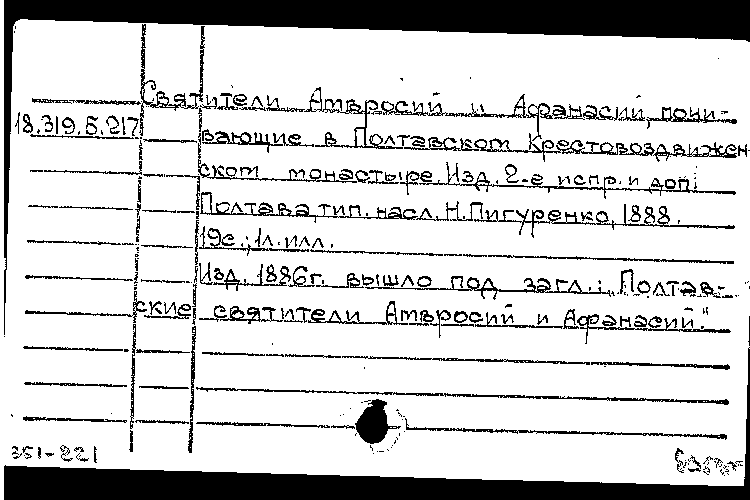 Святители Амвросий и Афанасий, почи-
18.319.5.217 вающие в Полтавском Крестовоздвижен
ском монастыре. Изд. 2-е, испр. и доп.
Полтава, тип. насл. Н. Пигуренко, 1888.
19с.; 1л. илл.
Изд. 1886г. вышло под загл.: „Полтав-
ские святители Амвросий и Афанасий."
351-221